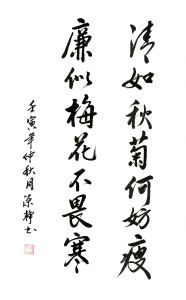 清如秋菊何妨瘦
廉似梅花不畏寒
壬寅年仲秋月陈静书